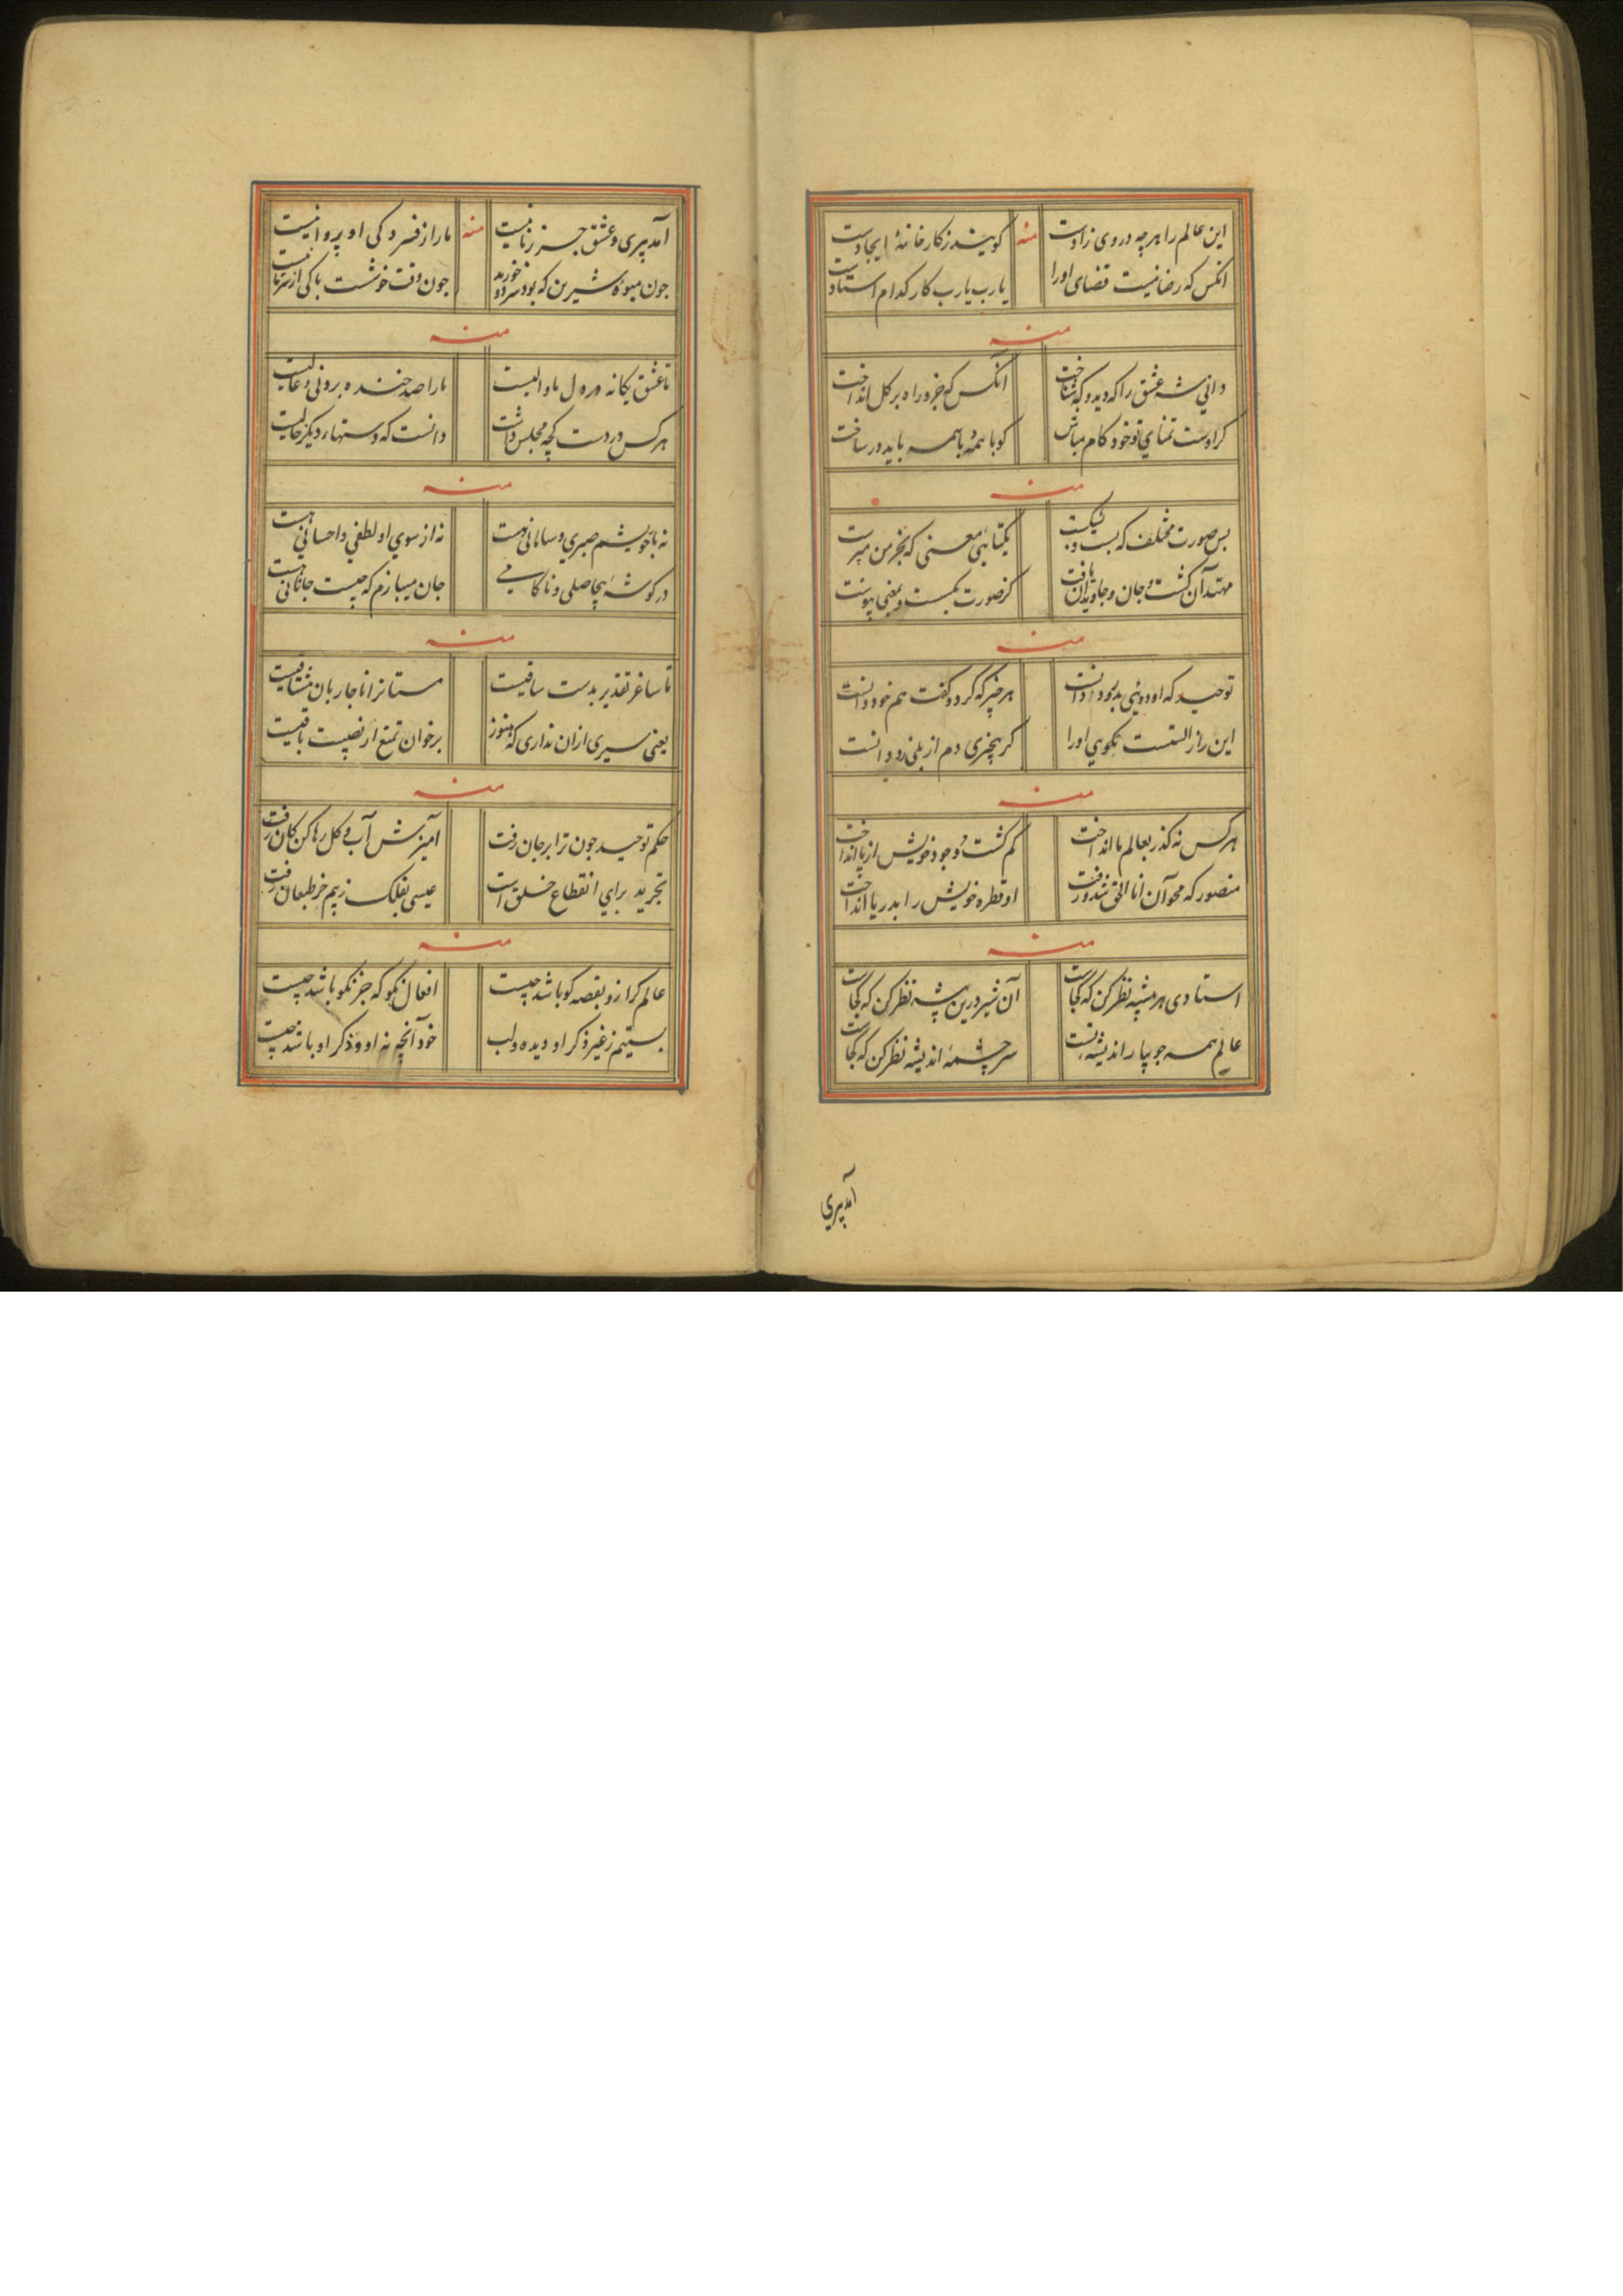 این عالم را هر چه در وی زادست منه گویند ز کارخانهٔ ایجادست
انکس که رضا نیست قضای اورا یارب یارب کار کدام استادست
منه
دانی شه عشق را که دید و که شناخت انکس که جزو راه بر کل انداخت
کو با همهٔ با همه باید در ساخت
منه
بس صورت مختلف که
منه
توحید که او هر چیز که کرد و گفت هم خود دانست
این راز الستست نکویی اورا کر بیخبری دم از بلی زد و دانست
منه
هر کس نه کذر بعالم ما انداخت کم کشت و جود خویش از پا انداخت
منصور که محو آن انا الحق شد و رفت او قطره خویش را بدریا انداخت
منه
استادی هر پیشه نظر کن که کجاست آن شیر درین بیشه نظر کن که کجاست
عالم همه جویبار اندیشه سر چشمهٔ اندیشه نظر کن که کجاست
آمد پیری
آمد پیری و عشق جز رنا نیست منه ما را ز فسردکی او پروا نیست
جون میوهٔ شیرین که بود سرد و جون وقت خوشست باکی از سرما نیست
منه
تا عشق یکانه در دل ما والیست ما را صد خنده برونی و عالیست
هر کس در دست کجه مجلس داشت دانست که دستهار دیکر خالیست
منه
نه با خویشم صبری و سامانی هست نه از سوی او لطفی و احسانی هست
در کوشهٔ بیحاصلی و ناکامی جان میبازم که چیست جانانی هست
منه
تا ساغر تقدیر بدست ساقیست
یعنی سیری ازان نداری که هنوز بر خوان تمتع از نصیبت باقیست
منه
حکم توحید جون ترا بر جان رفت آمیزش آب و کل رها کن کان رفت
تجرید برای انقطاع خلق است عیسی بفلک ز بیم خر طبعان رفت
منه
عالم کر از و بقصه کو باشد چیست افعال نکو که جز نکو باشد چیست
بستیم ز غیر ذکر او دیده و لب خود آنچه نه او و ذکر او باشد چیست